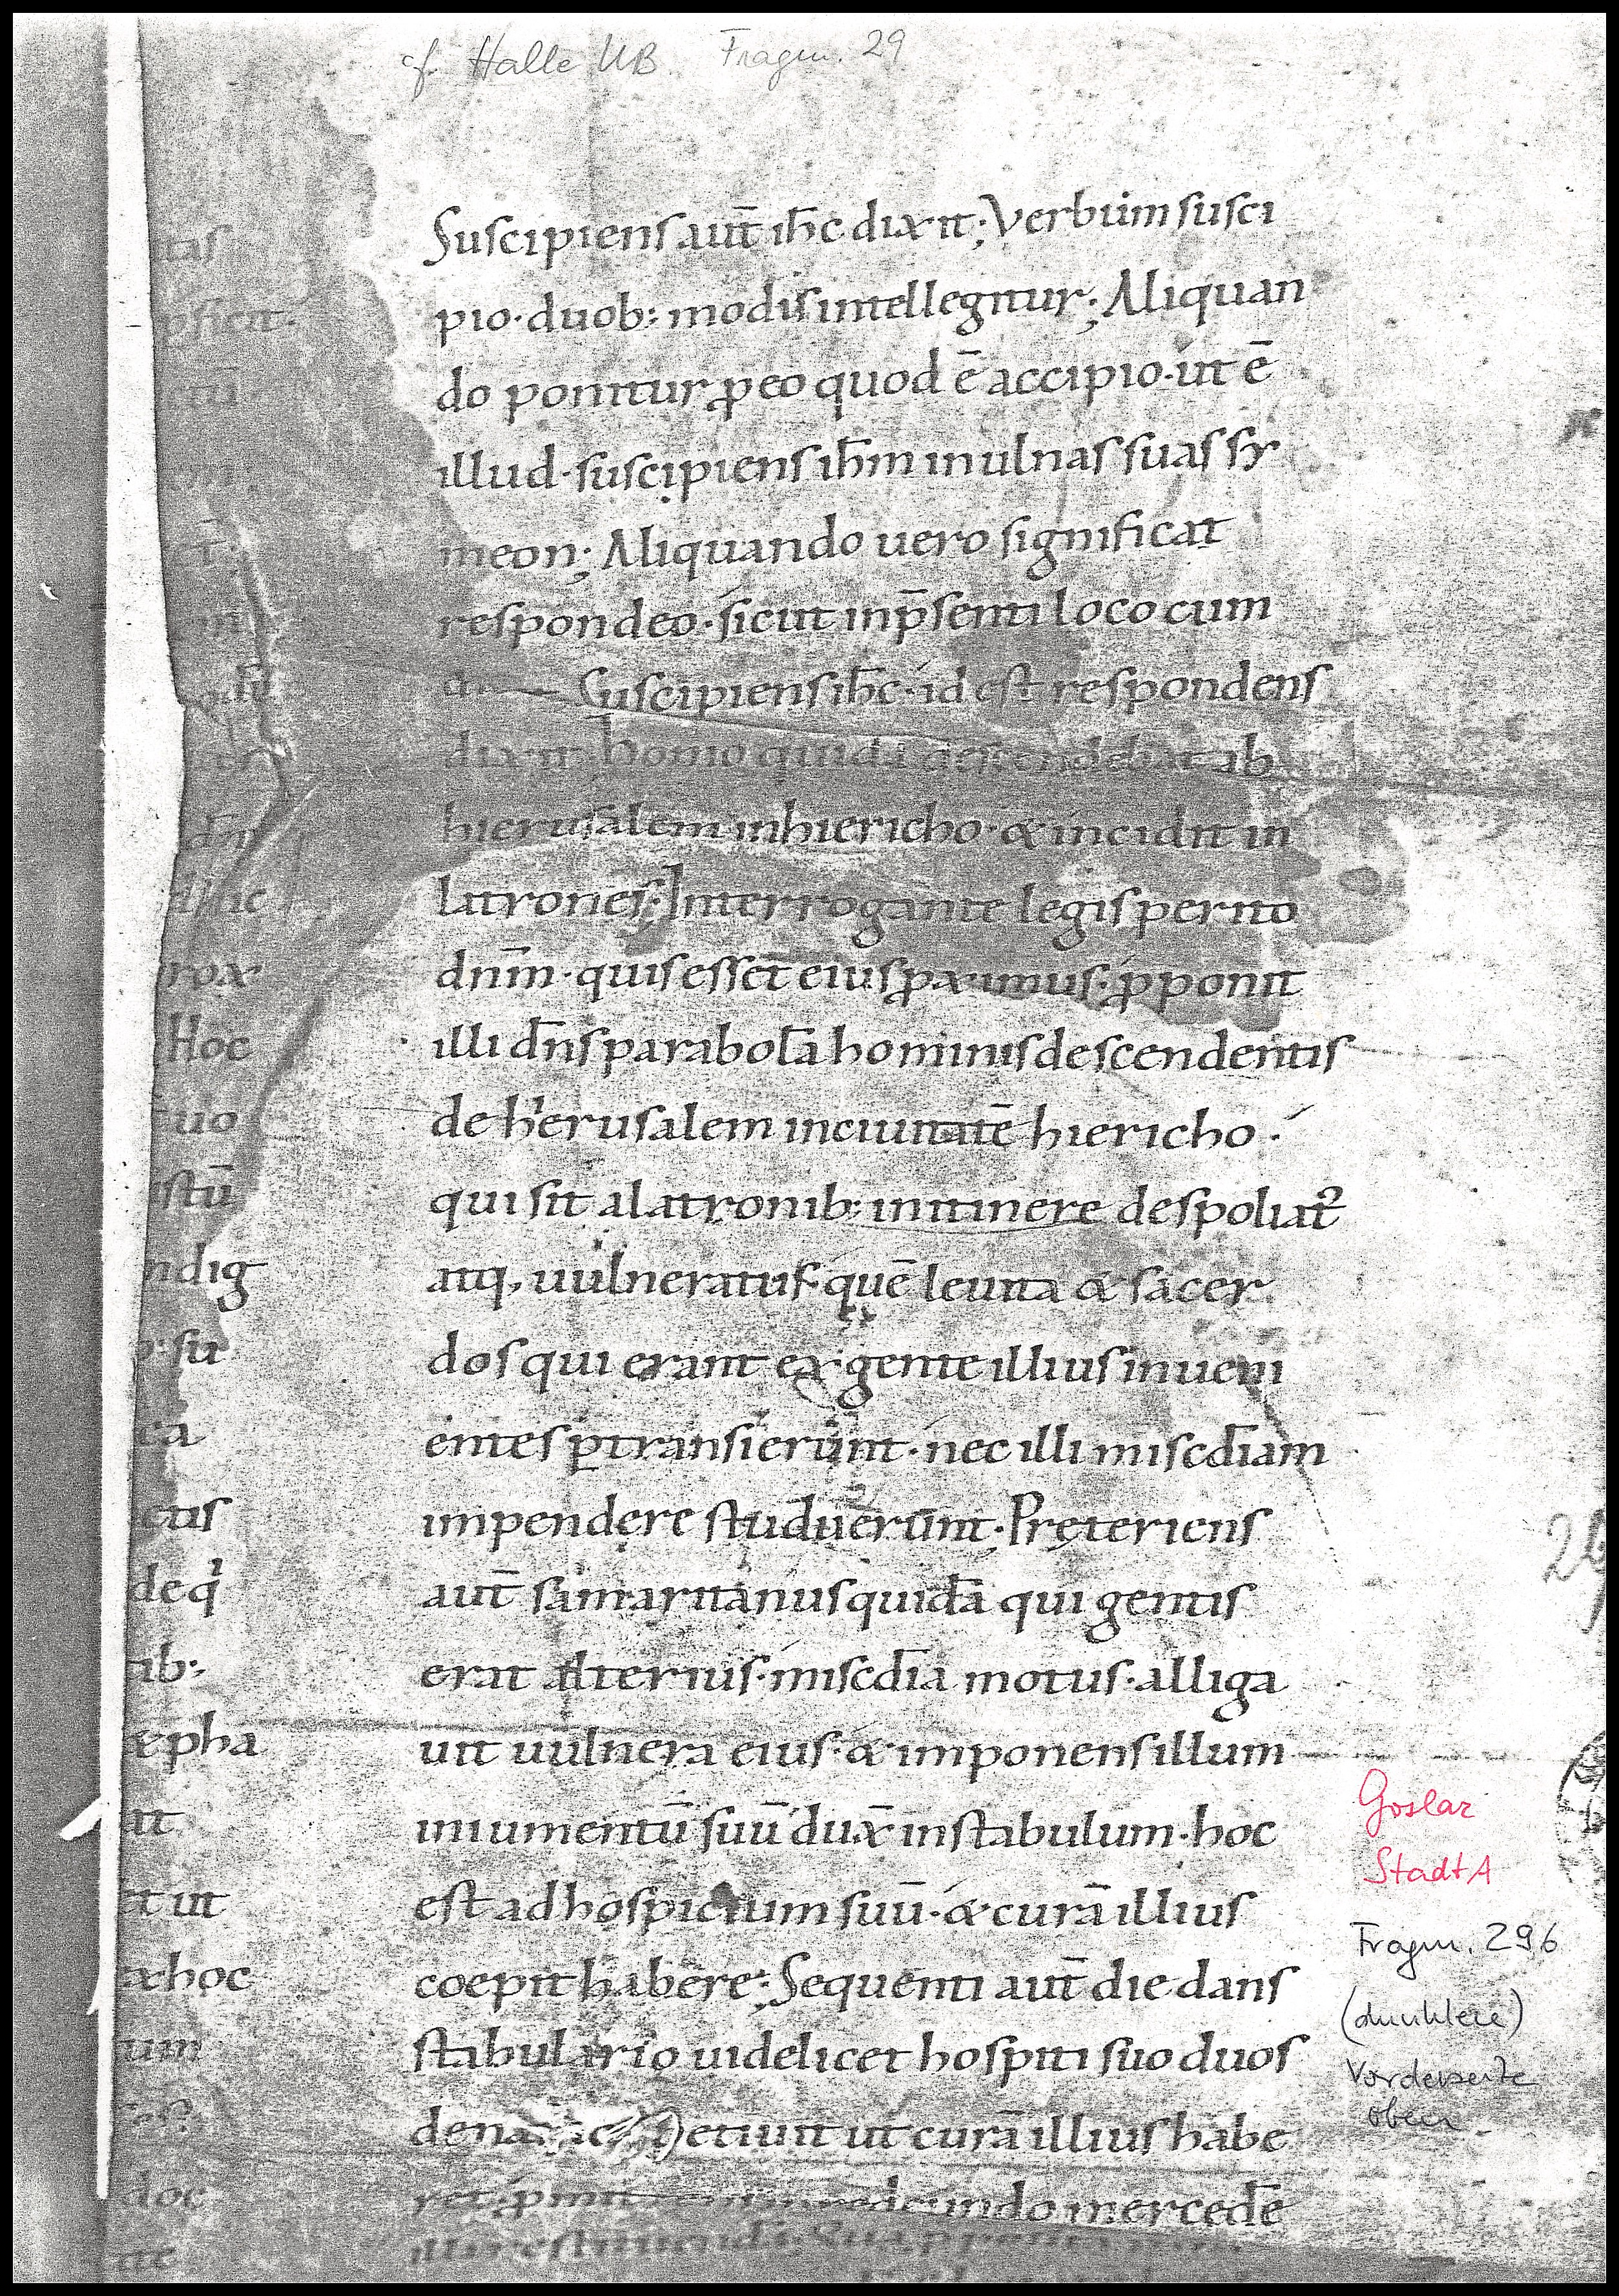 cf. Halle UB. Fragm. 29
Suscipiens aut̄ ih̄c dixit; Verbum susci
pio· duob: modis intellegitur; Aliquan
do ponitur ꝓ eo quod ē accipio· ut ē
illud· suscipiens ih̄m in ulnas suas sy
meon; Aliquando uero significat
respondeo· sicut in p̄senti loco cum
Suscipiens ih̄c· id est respondens
dixit· homo quidā descendebat ab
hierusalem in hiericho· & incidit in
latrones; Interrogante legisperito
dn̄m· quis esset eius ꝓximus· ꝓponit
illi dn̄s parabolā hominis descendentis
de hierusalem in ciuitatē hiericho·
qui sit a latronib: in itinere despoliat᷒
atq; uulneratus· quē leuita & sacer
dos qui erant ex gente illius inueni
entes ꝑtransierunt· nec illi misc̄diam
impendere studuerunt; Pręteriens
aut̄ samaritanus quidā qui gentis
erat alterius· misc̄dia motus· alliga
uit uulnera eius· & imponens illum
in iumentū suū dux̄ in stabulum· hoc
est ad hospicium suū· & curā illius
coepit habere; Sequenti aut̄ die dans
stabulario uidelicet hospiti suo duos
etiuit ut curā illius habe
mercedē
tas
Hoc
uo
stū
ndig
su
ctis
de qͥ
ib:
&pha
it
ut
&hoc
um
doc
Goslar
StadtA
Fragm. 296
(dunklere)
Vorderseite
oben